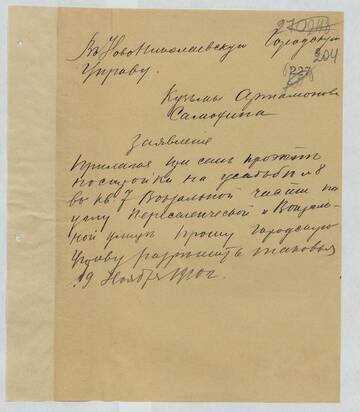 204
227
Въ Ново Николаевскую Городскую
Управу.
Кузьмы Артамонова
Самохина
Заявление
Прилагая при семъ проэктъ
постройки на усадьбе № 8
въ кв 7 Вокзальной части по
углу Переселенческой и Вокзаль-
ной улицъ прошу Городскую
Управу разрешить таковыя
19 Ноября 1910 г.